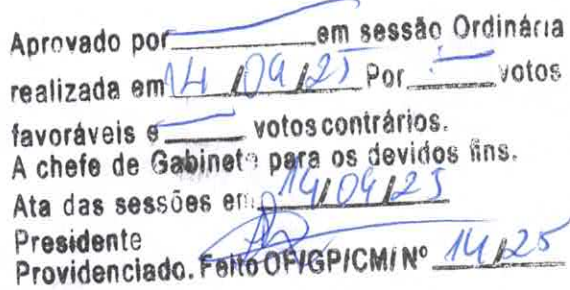 Aprovado por______em sessão Ordinária
realizada em 14/04/25 Por ____votos
favoráveis e____ votos contrários.
A chefe de Gabinete para os devidos fins.
Ata das sessões em 14/04/25
Presidente
Providenciado. Feito OF/GP/CM/Nº 14/25